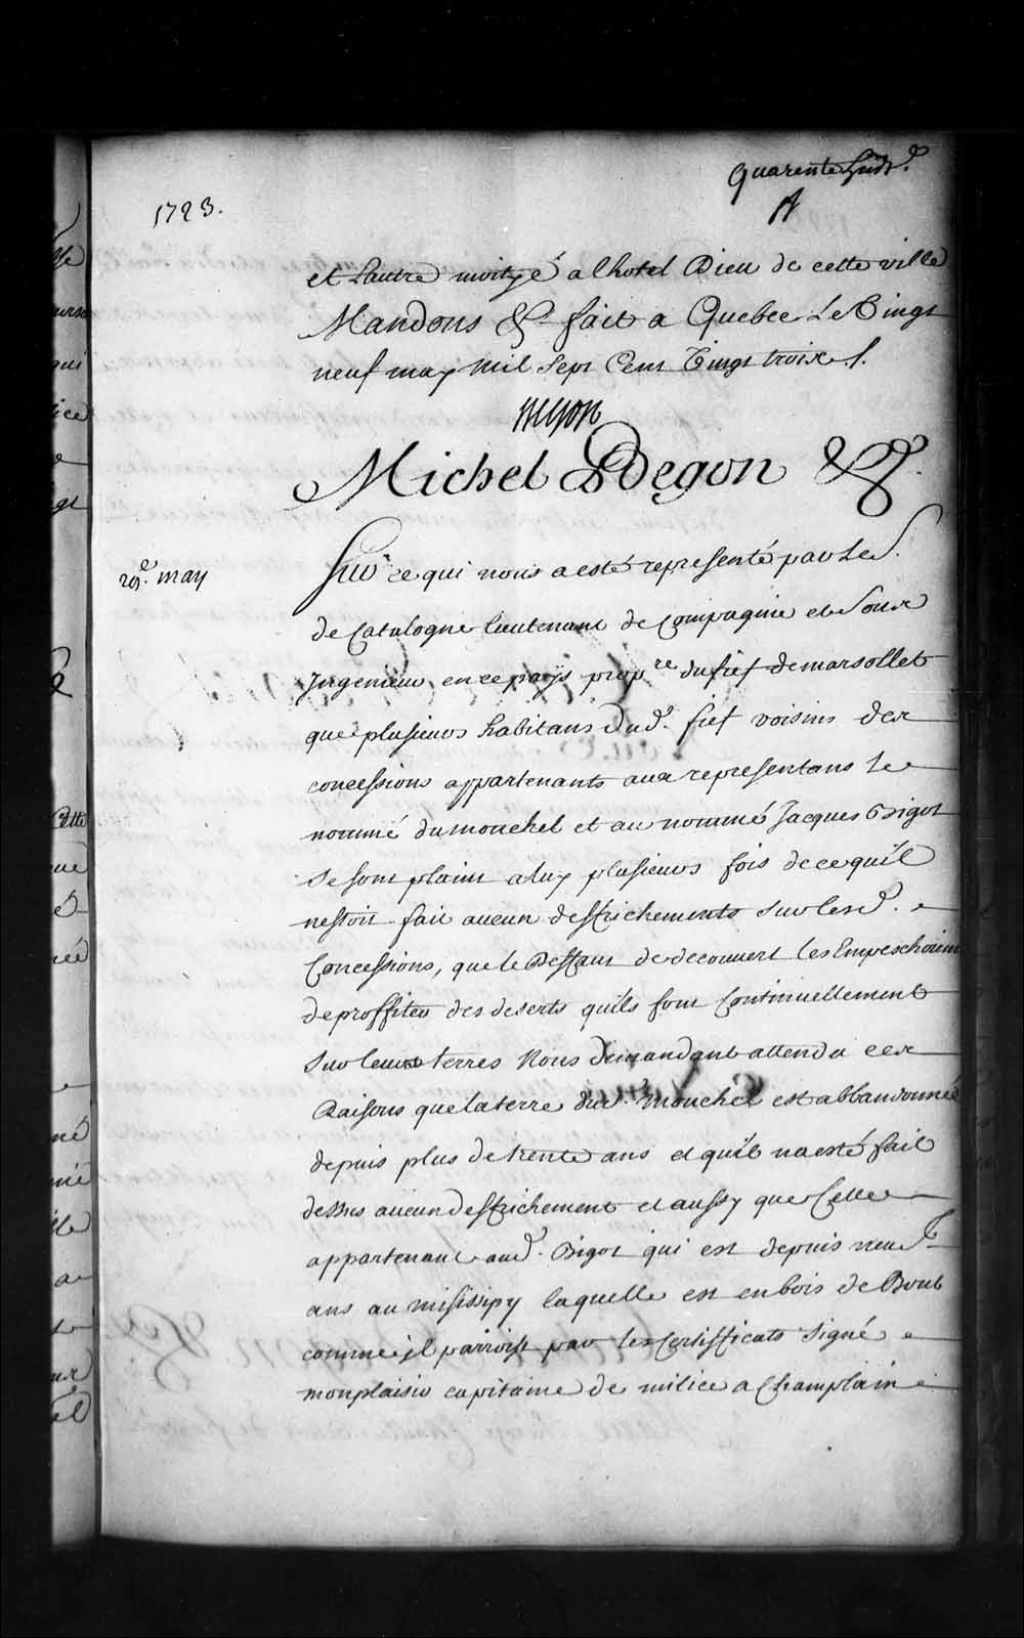 quarente huit.
1723.
et Lautre moitye a lhotel Dieu de cette ville
Mandons &c fait a Quebec Le Vingt
neuf may mil Sept Cent Vingt troix ./.
Begon
Michel Begon &c.
29.e may
Sur ce qui nous a esté representé par le S.
de Catalogne lieutenant de Compagnie et Soux
Ingenieur en ce pays prop.re du fief de marsollet
que plusieurs habitans dud. fief voisins dex
concessions appartenants aux representans le
nommé dumouchel et au nommé Jacques Bigot
Se sont plaint a luy plusieurs fois de ce quil
nestoit fait aucun desfrichements sur lesd.
Concessions, que le Deffaut de decouvert les Empeschoient
de proffiter des deserts quils font Continuellement
sur leurs terres Nous demandant attendu cex
Raisons que la terre dud. Mouchel est abbandonnée
depuis plus de trente ans et quil na esté fait
dessus aucun desfrichement et aussy que Celle
appartenant aud. Bigot qui est depuis neuf
ans au misissipy laquelle est en bois de Bout
comme jl parroist par les Certifficats Signé
monplaisir capitaine de milice a Champlain